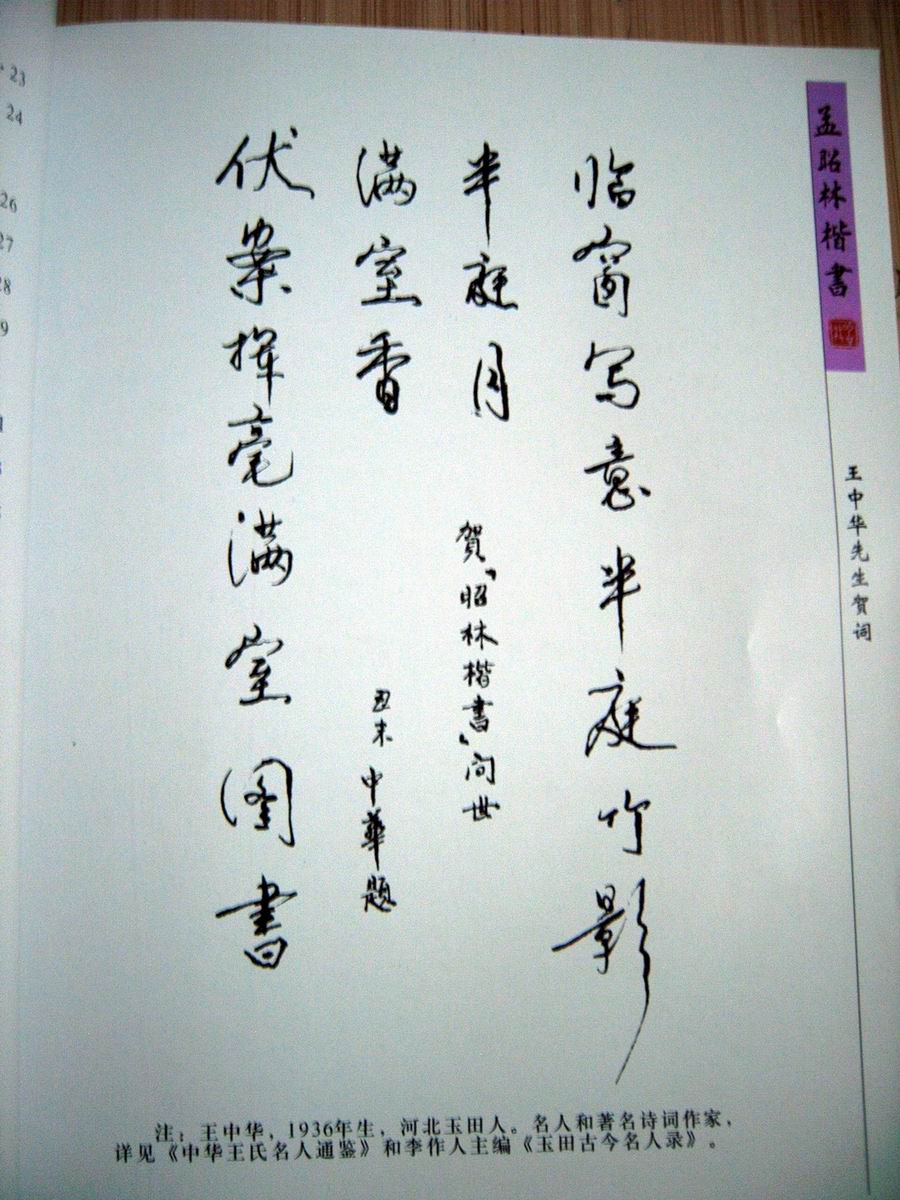 孟昭林楷書
王中华先生贺词
临窗写意半庭竹影
半庭月
賀"昭林楷書"问世
满室香
丑末 中華題
伏案挥毫满室图書
注：王中华，1936年生，河北玉田人。名人和著名诗词作家，
详见《中华王氏名人通鉴》和李作人主编《玉田古今名人录》。
23
24
26
27
28